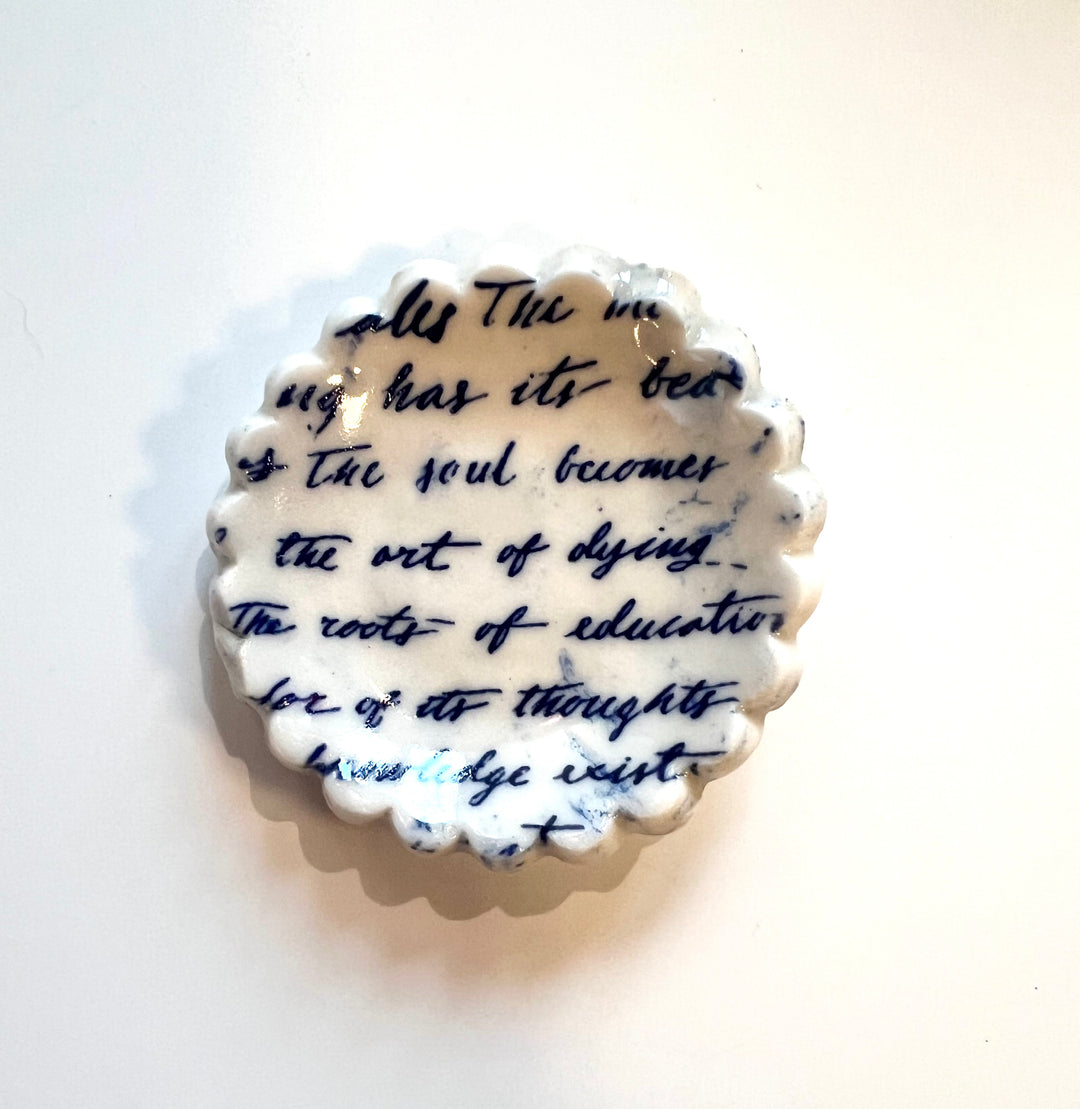 ales The
has its bea
The soul becomes
the art of dying
The roots of education
lor of its thoughts
knowledge exists
t